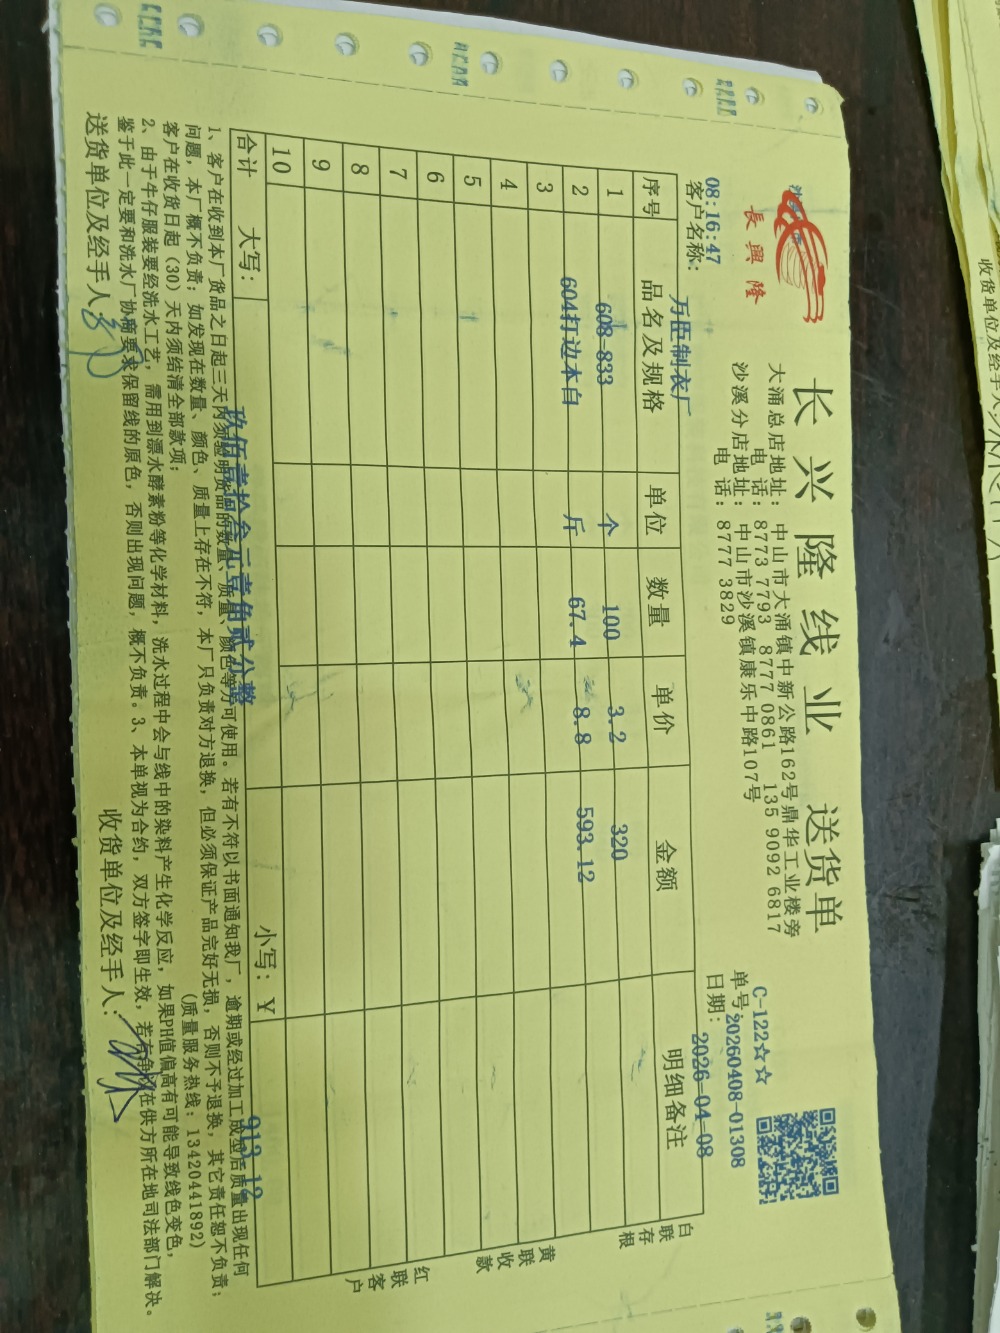 長興隆
长兴隆线业 送货单
大涌总店地址: 中山市大涌镇中新公路162号鼎华工业楼旁
电话: 8773 7793 8777 0861 135 9092 6817
沙溪分店地址: 中山市沙溪镇康乐中路107号
电话: 8777 3829
C-122☆☆
单号:20260408-01308
日期: 2026-04-08
08:16:47
客户名称: 万臣制衣厂
序号 品名及规格 单位 数量 单价 金额 明细备注
1 608-833 个 100 3.2 320
2 604打边本白 斤 67.4 8.8 593.12
3
4
5
6
7
8
9
10
合计 大写: 玖佰壹拾叁元壹角贰分整 小写: ¥ 913.12
白联存根
黄联收款
红联客户
1、客户在收到本厂货品之日起三天内须验明货品的数量、质量、颜色等方可使用。若有不符以书面通知我厂, 逾期或经过加工成型后质量出现任何
问题, 本厂概不负责; 如发现在数量、颜色、质量上存在不符, 本厂只负责对方退换, 但必须保证产品完好无损, 否则不予退换, 其它责任恕不负责;
客户在收货日起 (30) 天内须结清全部款项; (质量服务热线: 13420441892)
2、由于牛仔服装要经洗水工艺, 需用到漂水酵素粉等化学材料, 洗水过程中会与线中的染料产生化学反应, 如果PH值偏高有可能导致线色变色,
鉴于此一定要和洗水厂协商要求保留线的原色, 否则出现问题, 概不负责。3、本单视为合约, 双方签字即生效, 若有争议在供方所在地司法部门解决。
送货单位及经手人: 收货单位及经手人:
收货单位及经手人